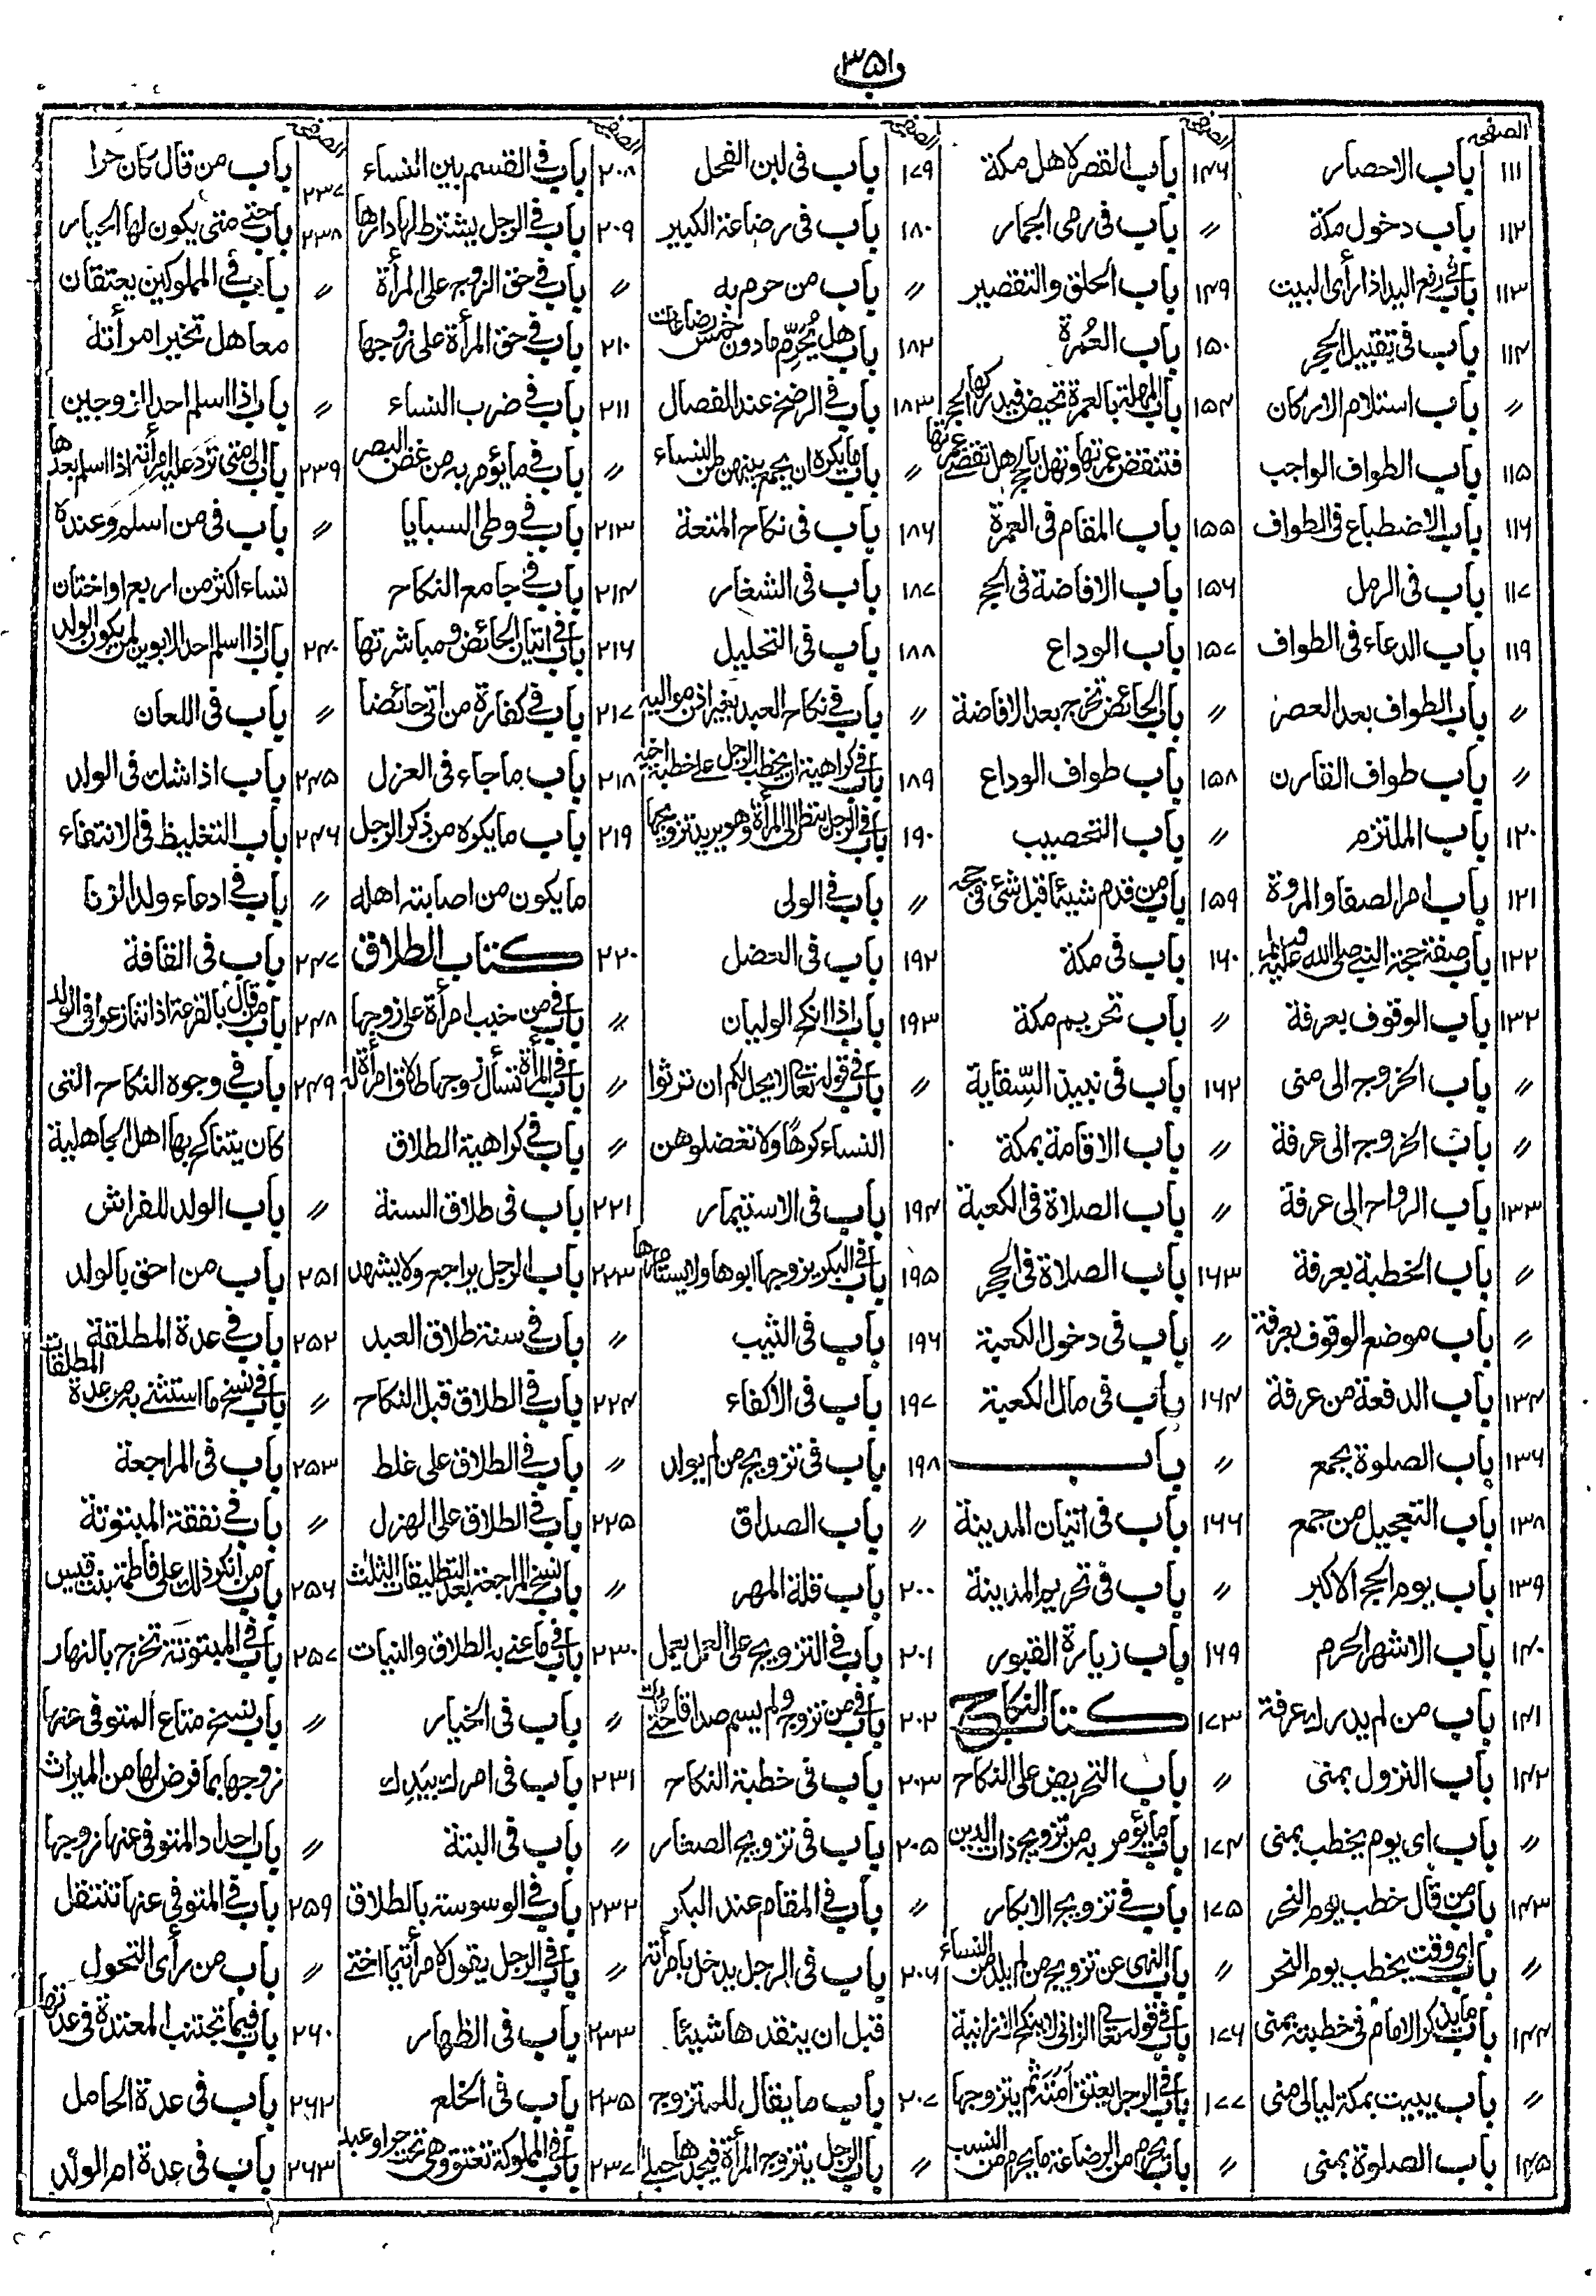 ٣٥١
الصفحه
١١١ باب الاحصار
١١٢ باب دخول مكة
١١٣ باب فى رفع اليد اذا رأى البيت
١١٤ باب فى تقبيل الحجر
〃 باب استلام الاركان
١١٥ باب الطواف الواجب
١١٦ باب الاضطباع فى الطواف
١١٧ باب فى الرمل
١١٩ باب الدعاء فى الطواف
〃 باب الطواف بعد العصر
〃 باب طواف القارن
١٢٠ باب الملتزم
١٢١ باب امر الصفا والمروة
١٢٢ باب صفة حجة النبى صلى الله عليه وسلم
١٣٢ باب الوقوف بعرفة
〃 باب الخروج الى منى
〃 باب الخروج الى عرفة
١٣٣ باب الرواح الى عرفة
〃 باب الخطبة بعرفة
〃 باب موضع الوقوف بعرفة
١٣٤ باب الدفعة من عرفة
١٣٦ باب الصلوة بجمع
١٣٨ باب التعجيل من جمع
١٣٩ باب يوم الحج الاكبر
١٤٠ باب الاشهر الحرم
١٤١ باب من لم يدرك عرفة
١٤٢ باب النزول بمنى
〃 باب اى يوم يخطب بمنى
١٤٣ باب من قال خطب يوم النحر
〃 باب اى وقت يخطب يوم النحر
١٤٤ باب ما يذكر الامام فى خطبته بمنى
〃 باب يبيت بمكة ليالى منى
١٤٥ باب الصلوة بمنى
الصفحه
١٤٦ باب القصر لاهل مكة
〃 باب فى رمى الجمار
١٤٩ باب الحلق والتقصير
١٥٠ باب العُمرة
١٥٤ باب المهلة بالعمرة تحيض فيدركها الحج
فتنقض عمرتها وتهل بالحج هل تقضى عمرتها
١٥٥ باب المقام فى العمرة
١٥٦ باب الافاضة فى الحج
١٥٧ باب الوداع
〃 باب الحائض تخرج بعد الافاضة
١٥٨ باب طواف الوداع
〃 باب التحصيب
١٥٩ باب من قدم شيئا قبل شئ فى حجه
١٦٠ باب فى مكة
〃 باب تحريم مكة
١٦٢ باب فى نبيذ السِّقاية
〃 باب الاقامة بمكة
〃 باب الصلاة فى الكعبة
١٦٣ باب الصلاة فى الحجر
〃 باب فى دخول الكعبة
١٦٤ باب فى مال الكعبة
〃 باب
١٦٦ باب فى اتيان المدينة
〃 باب فى تحريم المدينة
١٦٩ باب زيارة القبور
١٧٣ كتاب النكاح
〃 باب التحريض على النكاح
١٧٤ باب ما يؤمر به من تزويج ذات الدين
١٧٥ باب فى تزويج الابكار
〃 باب النهى عن تزويج من لم يلد من النساء
١٧٦ باب فى قوله تعالى الزانى لا ينكح الا زانية
١٧٧ باب فى الرجل يعتق اَمَتَه ثم يتزوجها
〃 باب يحرم من الرضاعة ما يحرم من النسب
الصفحه
١٧٩ باب فى لبن الفحل
١٨٠ باب فى رضاعة الكبير
〃 باب من حرم به
١٨٢ باب هل يُحَرِّم ما دون خمس رضعات
١٨٣ باب فى الرضخ عند الفصال
〃 باب ما يكره ان يجمع بينهن من النساء
١٨٦ باب فى نكاح المتعة
١٨٧ باب فى الشغار
١٨٨ باب فى التحليل
〃 باب فى نكاح العبد بغير اذن مواليه
١٨٩ باب فى كراهية ان يخطب الرجل على خطبة اخيه
١٩٠ باب فى الرجل ينظر الى المرأة وهو يريد تزويجها
〃 باب فى الولى
١٩٢ باب فى العضل
١٩٣ باب اذا انكح الوليان
〃 باب فى قوله تعالى لا يحل لكم ان ترثوا
النساء كرهًا ولا تعضلوهن
١٩٤ باب فى الاستيمار
١٩٥ باب فى البكر يزوجها ابوها ولا يستامرها
١٩٦ باب فى الثيب
١٩٧ باب فى الاكفاء
١٩٨ باب فى تزويج من لم يولد
〃 باب الصداق
٢٠٠ باب قلة المهر
٢٠١ باب فى التزويج على العمل يعمل
٢٠٢ باب فى من تزوج ولم يسم صداقا حتى مات
٢٠٣ باب فى خطبة النكاح
٢٠٥ باب فى تزويج الصغار
〃 باب فى المقام عند البكر
٢٠٦ باب فى الرجل يدخل بامرأته
قبل ان ينقدها شيئا
٢٠٧ باب ما يقال للمتزوج
〃 باب الرجل يتزوج المرأة فيجدها حبلى
الصفحه
٢٠٨ باب فى القسم بين النساء
٢٠٩ باب فى الرجل يشترط لها دارها
〃 باب فى حق الزوج على المرأة
٢١٠ باب فى حق المرأة على زوجها
٢١١ باب فى ضرب النساء
〃 باب فى ما يؤمر به من غض البصر
٢١٣ باب فى وطى السبايا
٢١٤ باب فى جامع النكاح
٢١٦ باب فى اتيان الحائض ومباشرتها
٢١٧ باب فى كفارة من اتى حائضا
٢١٨ باب ما جاء فى العزل
٢١٩ باب ما يكره من ذكر الرجل
ما يكون من اصابته اهله
٢٢٠ كتاب الطلاق
〃 باب فى من خبب امرأة على زوجها
〃 باب فى المرأة تسأل زوجها طلاق امرأة له
〃 باب فى كراهية الطلاق
٢٢١ باب فى طلاق السنة
٢٢٣ باب الرجل يراجع ولا يشهد
〃 باب فى سنة طلاق العبد
٢٢٤ باب فى الطلاق قبل النكاح
〃 باب فى الطلاق على غلط
٢٢٥ باب فى الطلاق على الهزل
〃 باب نسخ المراجعة بعد التطليقات الثلث
٢٣٠ باب فى ما عنى به الطلاق والنيات
〃 باب فى الخيار
٢٣١ باب فى امرك بيَدِك
〃 باب فى البتة
٢٣٢ باب فى الوسوسة بالطلاق
〃 باب فى الرجل يقول لامرأته يا اختى
٢٣٣ باب فى الظهار
٢٣٥ باب فى الخلع
٢٣٧ باب فى المملوكة تعتق وهى تحت حر او عبد
الصفحه
٢٣٧ باب من قال كان حرا
٢٣٨ باب حتى متى يكون لها الخيار
〃 باب فى المملوكين يعتقان
معا هل تخير امرأته
〃 باب اذا اسلم احد الزوجين
٢٣٩ باب الى متى ترد عليه امرأته اذا اسلم بعدها
〃 باب فى من اسلم وعنده
نساء اكثر من اربع او اختان
٢٤٠ باب اذا اسلم احد الابوين لمن يكون الولد
〃 باب فى اللعان
٢٤٥ باب اذا شك فى الولد
٢٤٦ باب التغليظ فى الانتفاء
〃 باب فى ادعاء ولد الزنا
٢٤٧ باب فى القافة
٢٤٨ باب من قال بالقرعة اذا تنازعوا فى الولد
٢٤٩ باب فى وجوه النكاح التى
كان يتناكح بها اهل الجاهلية
〃 باب الولد للفراش
٢٥١ باب من احق بالولد
٢٥٢ باب فى عدة المطلقة
〃 باب فى نسخ ما استثنى به من عدة المطلقات
٢٥٣ باب فى المراجعة
〃 باب فى نفقة المبتوتة
٢٥٦ باب من انكر ذلك على فاطمة بنت قيس
٢٥٧ باب فى المبتوتة تخرج بالنهار
〃 باب نسخ متاع المتوفى عنها
زوجها بما فرض لها من الميراث
〃 باب احداد المتوفى عنها زوجها
٢٥٩ باب فى المتوفى عنها تنتقل
〃 باب من رأى التحول
٢٦٠ باب فيما تجتنب المعتدة فى عدتها
٢٦٢ باب فى عدة الحامل
٢٦٣ باب فى عدة ام الولد